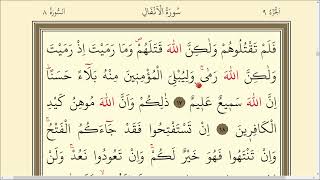 الجزء ٩ سُورَةُ الْأَنْفَالِ السُّورَةُ ٨
فَلَمْ تَقْتُلُوهُمْ وَلَٰكِنَّ اللَّهَ قَتَلَهُمْ ۚ وَمَا رَمَيْتَ إِذْ رَمَيْتَ
وَلَٰكِنَّ اللَّهَ رَمَىٰ ۚ وَلِيُبْلِيَ الْمُؤْمِنِينَ مِنْهُ بَلَاءً حَسَنًا ۚ
إِنَّ اللَّهَ سَمِيعٌ عَلِيمٌ ١٧ ذَٰلِكُمْ وَأَنَّ اللَّهَ مُوهِنُ كَيْدِ
الْكَافِرِينَ ١٨ إِنْ تَسْتَفْتِحُوا فَقَدْ جَاءَكُمُ الْفَتْحُ ۖ
وَإِنْ تَنْتَهُوا فَهُوَ خَيْرٌ لَكُمْ ۖ وَإِنْ تَعُودُوا نَعُدْ ۚ وَلَنْ